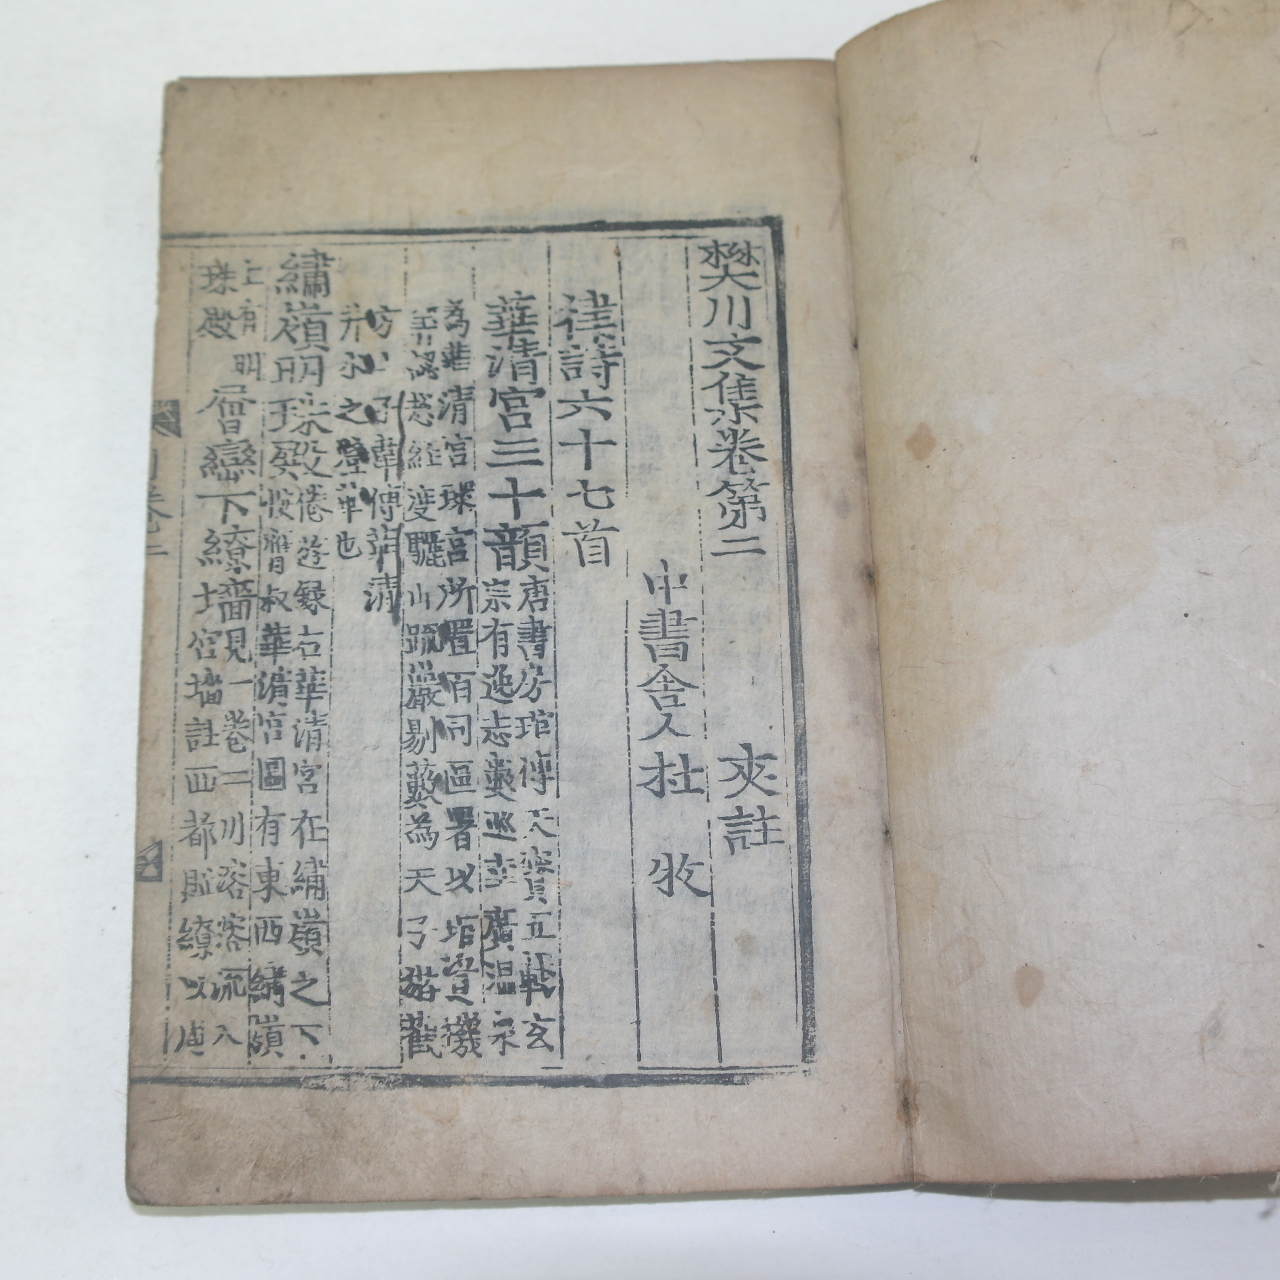 樊川文集卷第二　夾註
中書舍人杜　牧
律詩六十七首
華清宮三十韻
唐書房琯傳天寶五載玄
宗有逸志數巡幸廣溫泉
為華清宮環宮所置百司區署以琯資機
筭詔總經度驪山疏巖剔藪為天子游觀
華清
也
繡嶺明珠殿
倦遊錄云華清宮在繡嶺之下
叔華清宮圖有東西繡嶺
上有明
珠殿
層巒下繚牆
見一卷二川溶溶流入
宮墻註西都賦繚以周